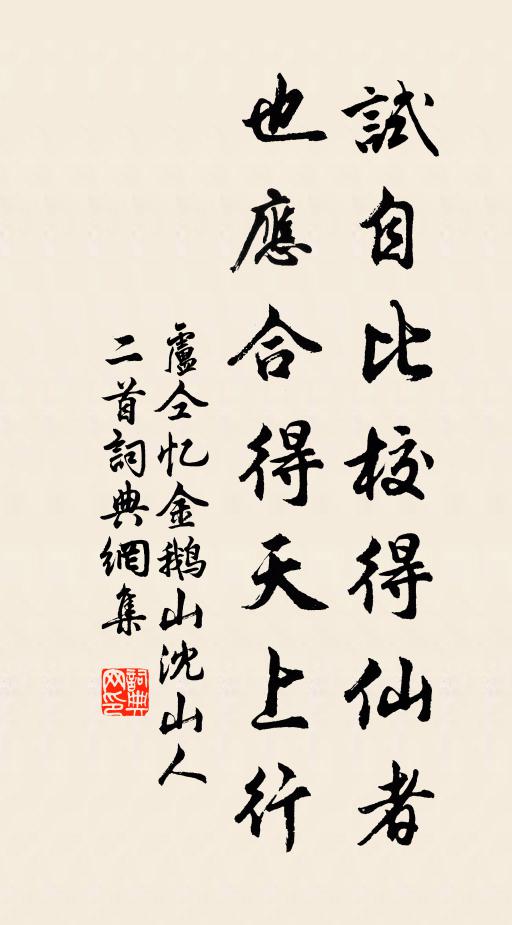 試自比校得仙者
也應合得天上行
盧仝忆金鵝山沈山人
二首詞典網集
詞典
网印